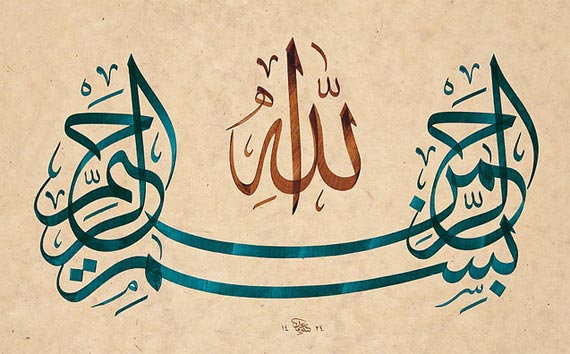 بسم الله الرحمن الرحيم
١٤ ٢٤